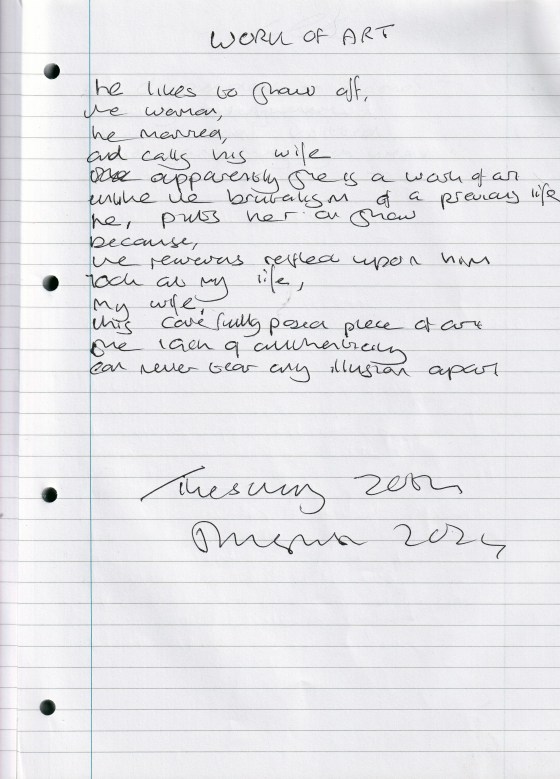 WORK OF ART
he likes to show off,
the woman,
he married,
and calls his wife
apparently she is a work of art
unlike the brutalism of a previous life
he, puts her on show
because,
the rewards reflect upon him
look at my life,
my wife,
this carefully posed piece of art
the lack of authenticity
can never tear any illusion apart
Tuesday 20th
2024